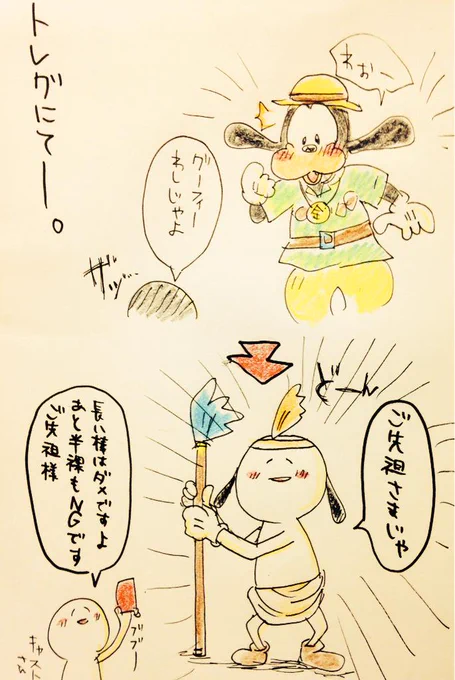 トレグにてー。
わおー
グーフィー
わしじゃよ
ザッ…
どーん
ご先祖さまじゃ
長い棒はダメですよ
あと半裸もNGです
ご先祖様
ブブー
キャスト
さん